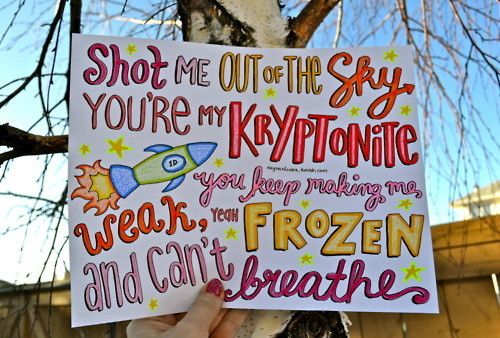 Shot ME OUT OF THE Sky
YOU'RE MY KRYPTONITE
1D
you keep making me
weak, yeah FROZEN
and can't breathe